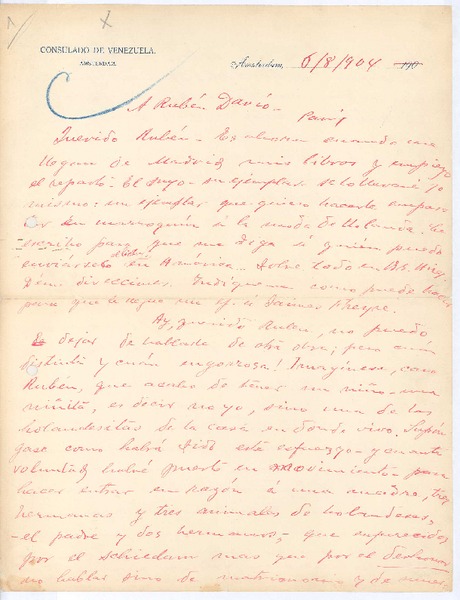 CONSULADO DE VENEZUELA.
AMSTERDAM.
Amsterdam, 6/8/904 190
A Rubén Darío -
París
Querido Rubén - Es ahora cuando me
llegan de Madrid mis libros y empiezo
el reparto - El suyo - su ejemplar se lo llevaré yo
mismo: un ejemplar que quiero hacerle empas-
tar en marroquín á la moda de Holanda. Le
escribo para que me diga si quién puedo
enviárselo en América... Sobre todo en Bs. Aires
dem direcciones. Indíqueme como puedo hacer
para que llegue un ej. á Jaimes Freyre.
Ay, querido Ruben, no puedo
dejar de hablarle de otra obra; pero cuán
distinta y cuán engorrosa! Imagínese, caro
Rubén, que acabo de tener un niño - una
niñita, es decir no yo, sino una de las
holandesitas de la casa en donde vivo. Supón-
gase como habrá sido este esfuerzo - y cuanta
voluntad habré puesto en movimiento - para
hacer entrar en razón á una madre, tres
hermanas y tres animales de holandeses,
- el padre y dos hermanos, - que enfurecidos
por el schiedam mas que por el deshonor
no hablan sino de matrimonio y de